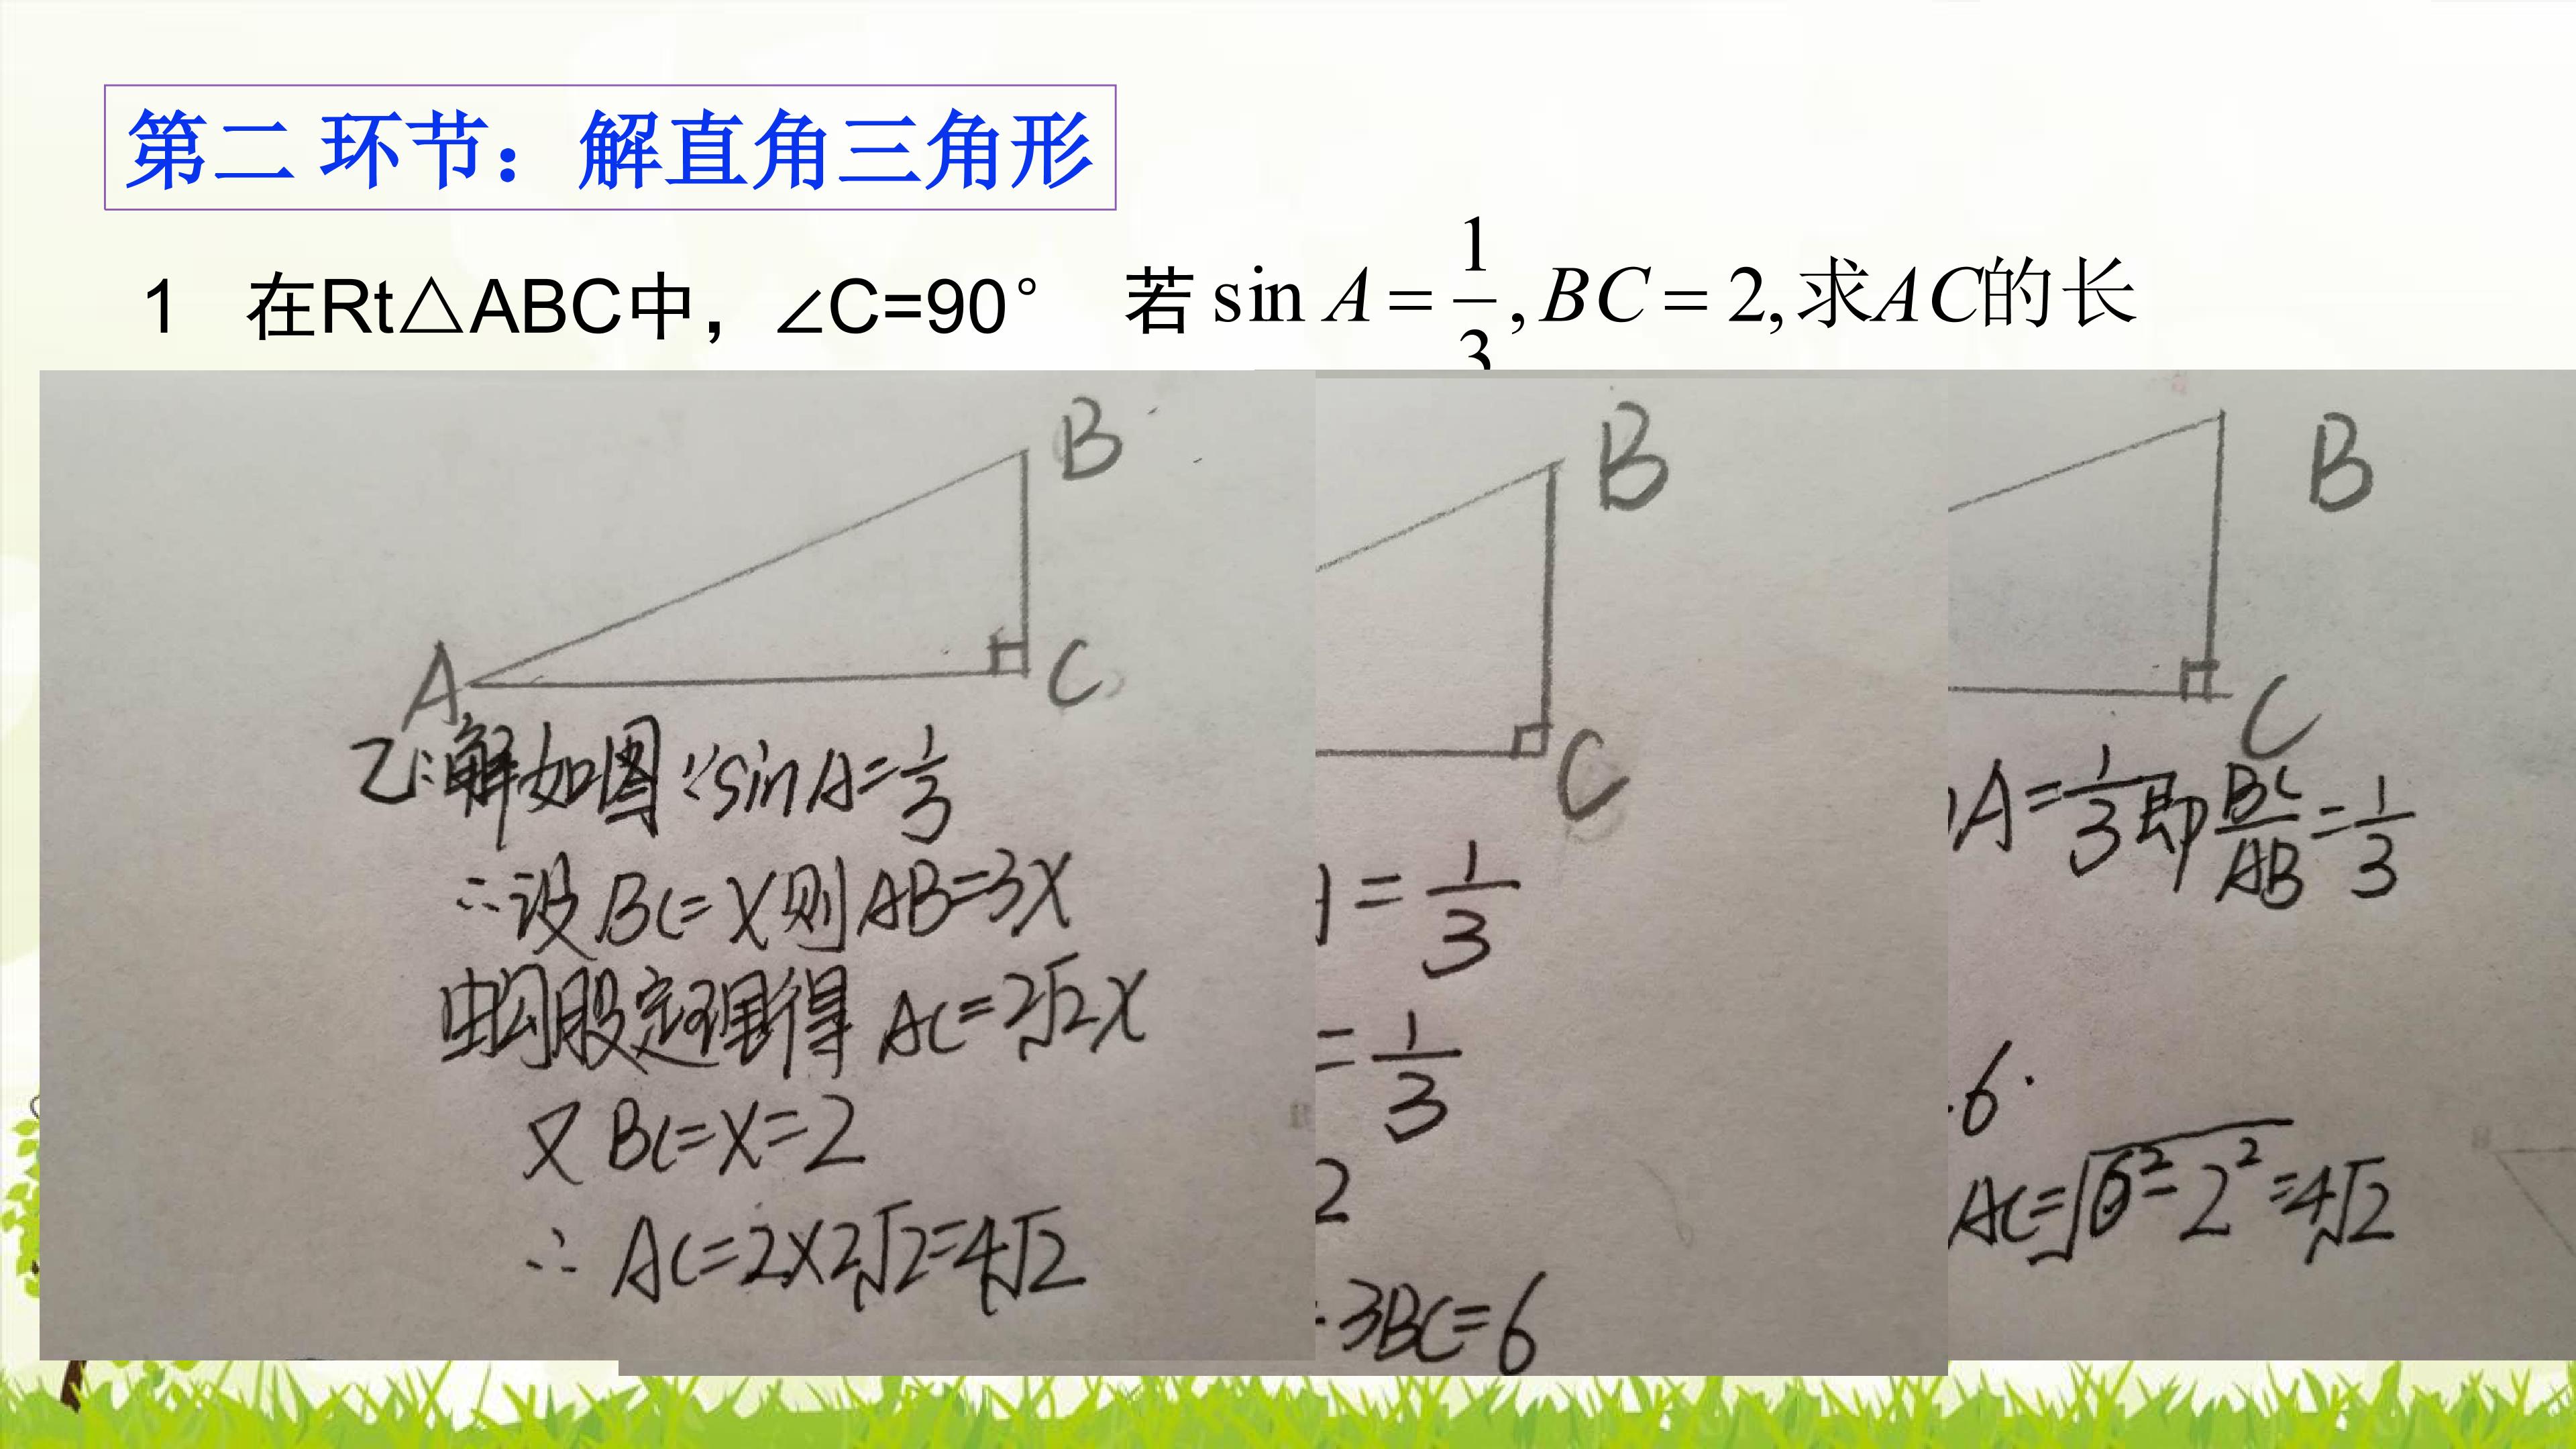 第二 环节：解直角三角形
1 在Rt△ABC中，∠C=90° 若 sin A = 1/3 , BC = 2, 求AC的长
B
A
C
乙:解如图∵sinA=1/3
∴设BC=X则AB=3X
由勾股定理得 AC=2√2X
又 BC=X=2
∴ AC=2X2√2=4√2
B
C
=1/3
=1/3
2
3BC=6
B
C
A=1/3即BC/AB=1/3
6.
AC=√6²-2²=4√2